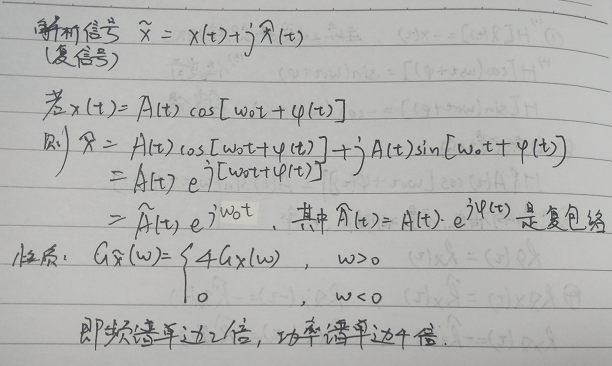 解析信号 x̃ = x(t)+j x̂(t)
(复信号)
若x(t)=A(t) cos[w₀t+φ(t)]
则 x̃ = A(t) cos[w₀t+φ(t)]+j A(t) sin[w₀t+φ(t)]
= A(t) e^{j[w₀t+φ(t)]}
= Ã(t) e^{jw₀t} , 其中 Ã(t)=A(t)·e^{jφ(t)} 是复包络
性质: G_x̃(w)= { 4Gx(w) , w>0
0 , w<0
即频谱单边2倍, 功率谱单边4倍.